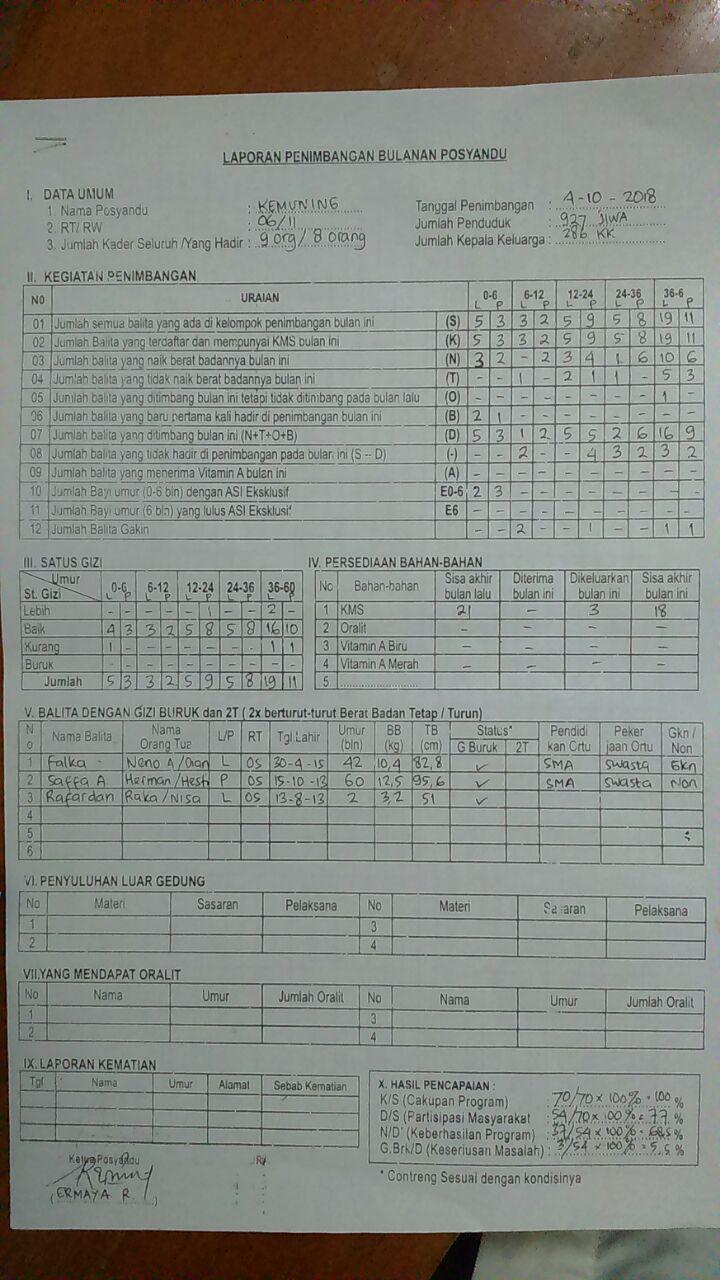 LAPORAN PENIMBANGAN BULANAN POSYANDU
I. DATA UMUM
1. Nama Posyandu : KEMUNING
2. RT/ RW : 06/11
3. Jumlah Kader Seluruh /Yang Hadir : 9 org/ 8 orang
Tanggal Penimbangan : 4-10-2018
Jumlah Penduduk : 927 JIWA
Jumlah Kepala Keluarga : 286 KK
II. KEGIATAN PENIMBANGAN
NO URAIAN 0-6 6-12 12-24 24-36 36-6
L P L P L P L P L P
01 Jumlah semua balita yang ada di kelompok penimbangan bulan ini (S) 5 3 3 2 5 9 5 8 19 11
02 Jumlah Balita yang terdaftar dan mempunyai KMS bulan ini (K) 5 3 3 2 5 9 5 8 19 11
03 Jumlah balita yang naik berat badannya bulan ini (N) 3 2 - 2 3 4 1 6 10 6
04 Jumlah balita yang tidak naik berat badannya bulan ini (T) - - 1 - 2 1 1 - 5 3
05 Jumlah balita yang ditimbang bulan ini tetapi tidak ditimbang pada bulan lalu (O) - - - - - - - - 1 -
06 Jumlah balita yang baru pertama kali hadir di penimbangan bulan ini (B) 2 1 - - - - - - - -
07 Jumlah balita yang ditimbang bulan ini (N+T+O+B) (D) 5 3 1 2 5 5 2 6 16 9
08 Jumlah balita yang tidak hadir di penimbangan pada bulan ini (S -- D) (-) - - 2 - - 4 3 2 3 2
09 Jumlah balita yang menerima Vitamin A bulan ini (A) - - - - - - - - - -
10 Jumlah Bayi umur (0-6 bln) dengan ASI Eksklusif E0-6 2 3 - - - - - - - -
11 Jumlah Bayi umur (6 bln) yang lulus ASI Eksklusif E6 - - - - - - - - - -
12 Jumlah Balita Gakin - - 2 - - 1 - - 1 1
III. SATUS GIZI
Umur
St. Gizi 0-6 6-12 12-24 24-36 36-60
L P L P L P L P L P
Lebih - - - - - 1 - - 2 -
Baik 4 3 3 2 5 8 5 8 16 10
Kurang 1 - - - - - - - 1 1
Buruk - - - - - - - - - -
Jumlah 5 3 3 2 5 9 5 8 19 11
IV. PERSEDIAAN BAHAN-BAHAN
No Bahan-bahan Sisa akhir bulan lalu Diterima bulan ini Dikeluarkan bulan ini Sisa akhir bulan ini
1 KMS 21 - 3 18
2 Oralit - - - -
3 Vitamin A Biru - - - -
4 Vitamin A Merah - - - -
5
V. BALITA DENGAN GIZI BURUK dan 2T ( 2x berturut-turut Berat Badan Tetap / Turun)
No Nama Balita Nama Orang Tua L/P RT Tgl.Lahir Umur (bln) BB (kg) TB (cm) Status* G Buruk 2T Pendidi kan Ortu Peker jaan Ortu Gkn / Non
1 Falka Neno A / Dian L 05 30-4-15 42 10,4 82,8 ✓ SMA Swasta Gkn
2 Saffa A Herman / Hesti P 05 15-10-13 60 12,5 95,6 ✓ SMA Swasta Non
3 Rafardan Raka / Nisa L 05 13-8-13 2 3,2 51 ✓
4
5
6
VI. PENYULUHAN LUAR GEDUNG
No Materi Sasaran Pelaksana No Materi Sasaran Pelaksana
1 3
2 4
VII.YANG MENDAPAT ORALIT
No Nama Umur Jumlah Oralit No Nama Umur Jumlah Oralit
1 3
2 4
IX. LAPORAN KEMATIAN
Tgl Nama Umur Alamat Sebab Kematian
X. HASIL PENCAPAIAN :
K/S (Cakupan Program) : 70/70 x 100% = 100 %
D/S (Partisipasi Masyarakat : 54/70 x 100% = 77 %
N/D' (Keberhasilan Program) : 37/54 x 100% = 68,5 %
G.Brk/D (Keseriusan Masalah) : 3/54 x 100% = 5,5 %
* Contreng Sesuai dengan kondisinya
Ketua Posyandu
(ERMAYA R.